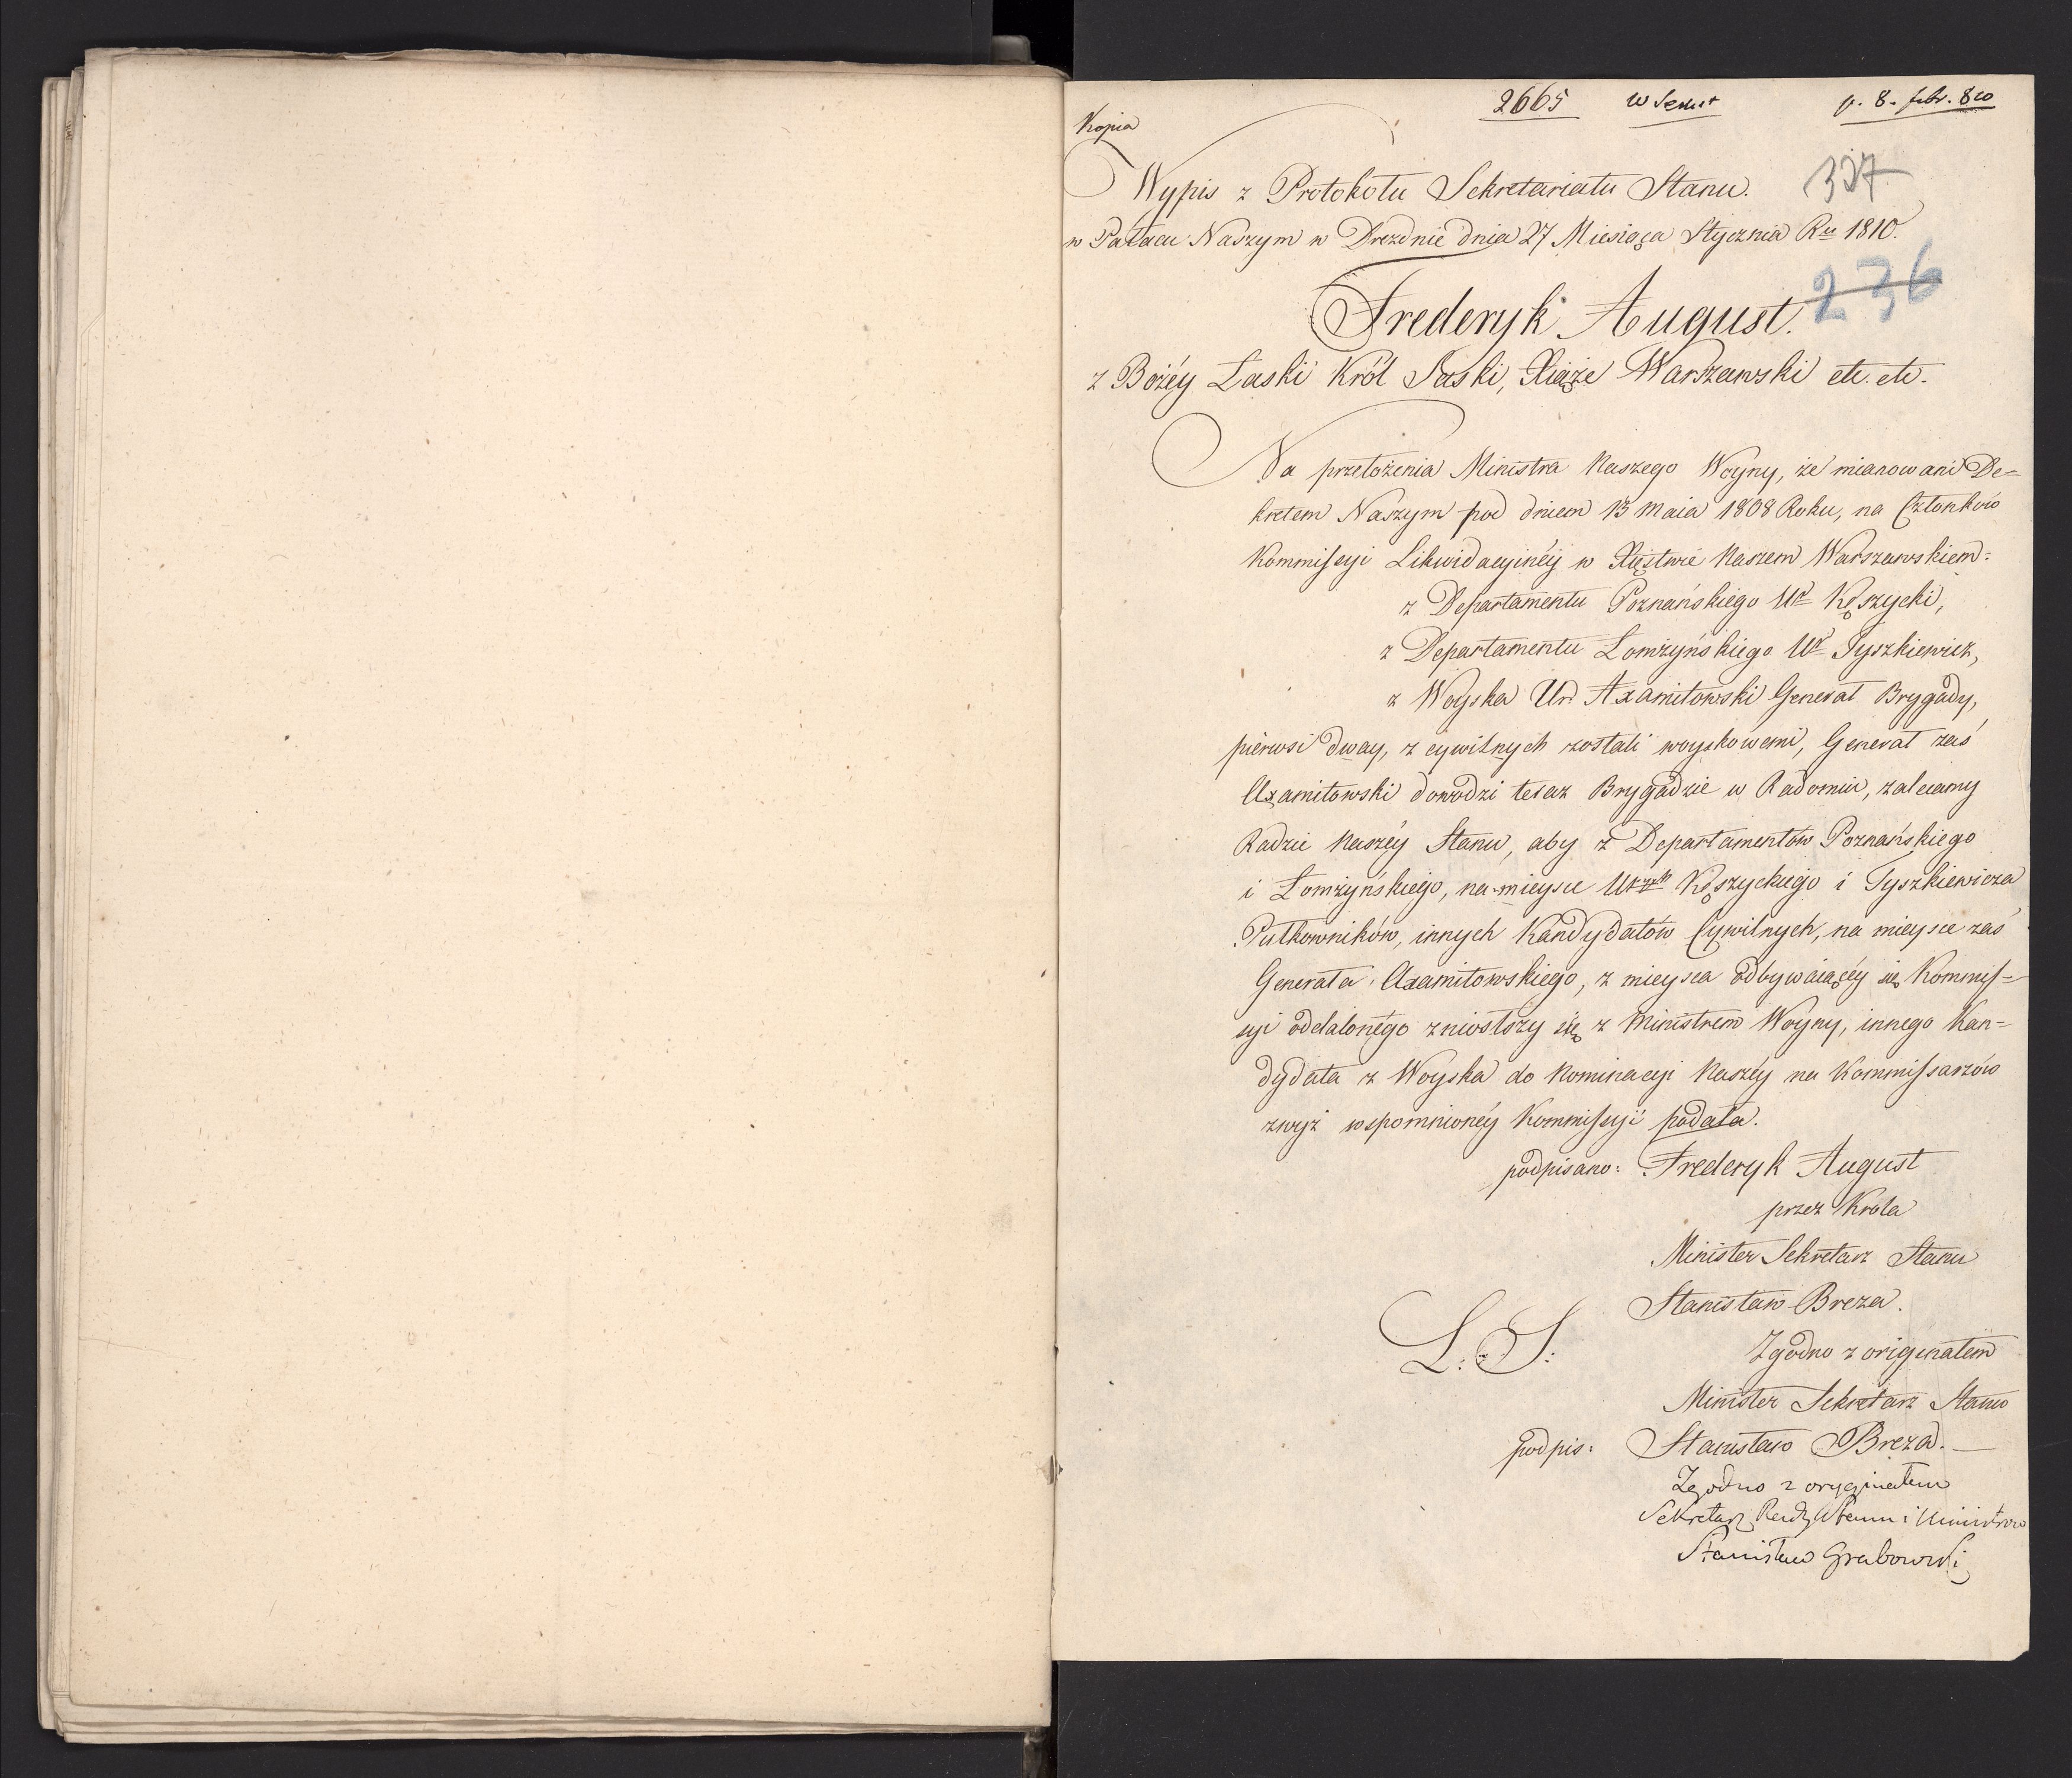 2665 p. 8. febr. 810
Kopia
Wypis z Protokołu Sekretariatu Stanu. 337
w Pałacu Naszym w Dreznie dnia 27 Miesiąca Stycznia Ru 1810.
236
Frederyk August.
z Bożéy Łaski Król Saski, Xiąże Warszawski etc. etc.
Na przełożenia Ministra Naszego Woyny, że mianowani De=
kretem Naszym pod dniem 13 Maia 1808 Roku, na Członków
Kommissyi Likwidacyinéy w Xięstwie Naszem Warszawskiem:
z Departamentu Poznańskiego Ur Kęszycki,
z Departamentu Łomżyńskiego Ur Tyszkiewicz,
z Woyska Ur. Axamitowski Generał Brygady,
piérwsi dway, z cywilnych zostali woyskowemi, Generał zaś
Axamitowski dowodzi teraz Brygadzie w Radomiu, zalecamy
Radzie Naszéy Stanu, aby z Departamentów Poznańskiego
i Łomżyńskiego, na mieysce Urzych Kęszyckiego i Tyszkiewicza
Pułkowników, innych Kandydatów Cywilnych, na mieysce zaś
Generała Axamitowskiego, z mieysca odbywaiącéy się Kommis=
syi oddalonégo zniosłszy się z Ministrem Woyny, innego Kan=
dydata z Woyska do Nominacyi Naszéy na Kommissarzów
zwyż wspomnionéy Kommissyi podała.
podpisano: Frederyk August
przez Króla
Minister Sekretarz Stanu
Stanisław Breza.
L: S:
Zgodno z originałem
Minister Sekretarz Stanu
podpis: Stanisław Breza.
Zgodno z oryginałem
Sekretarz Rady Stanu i Ministrów
Stanisław Grabowski